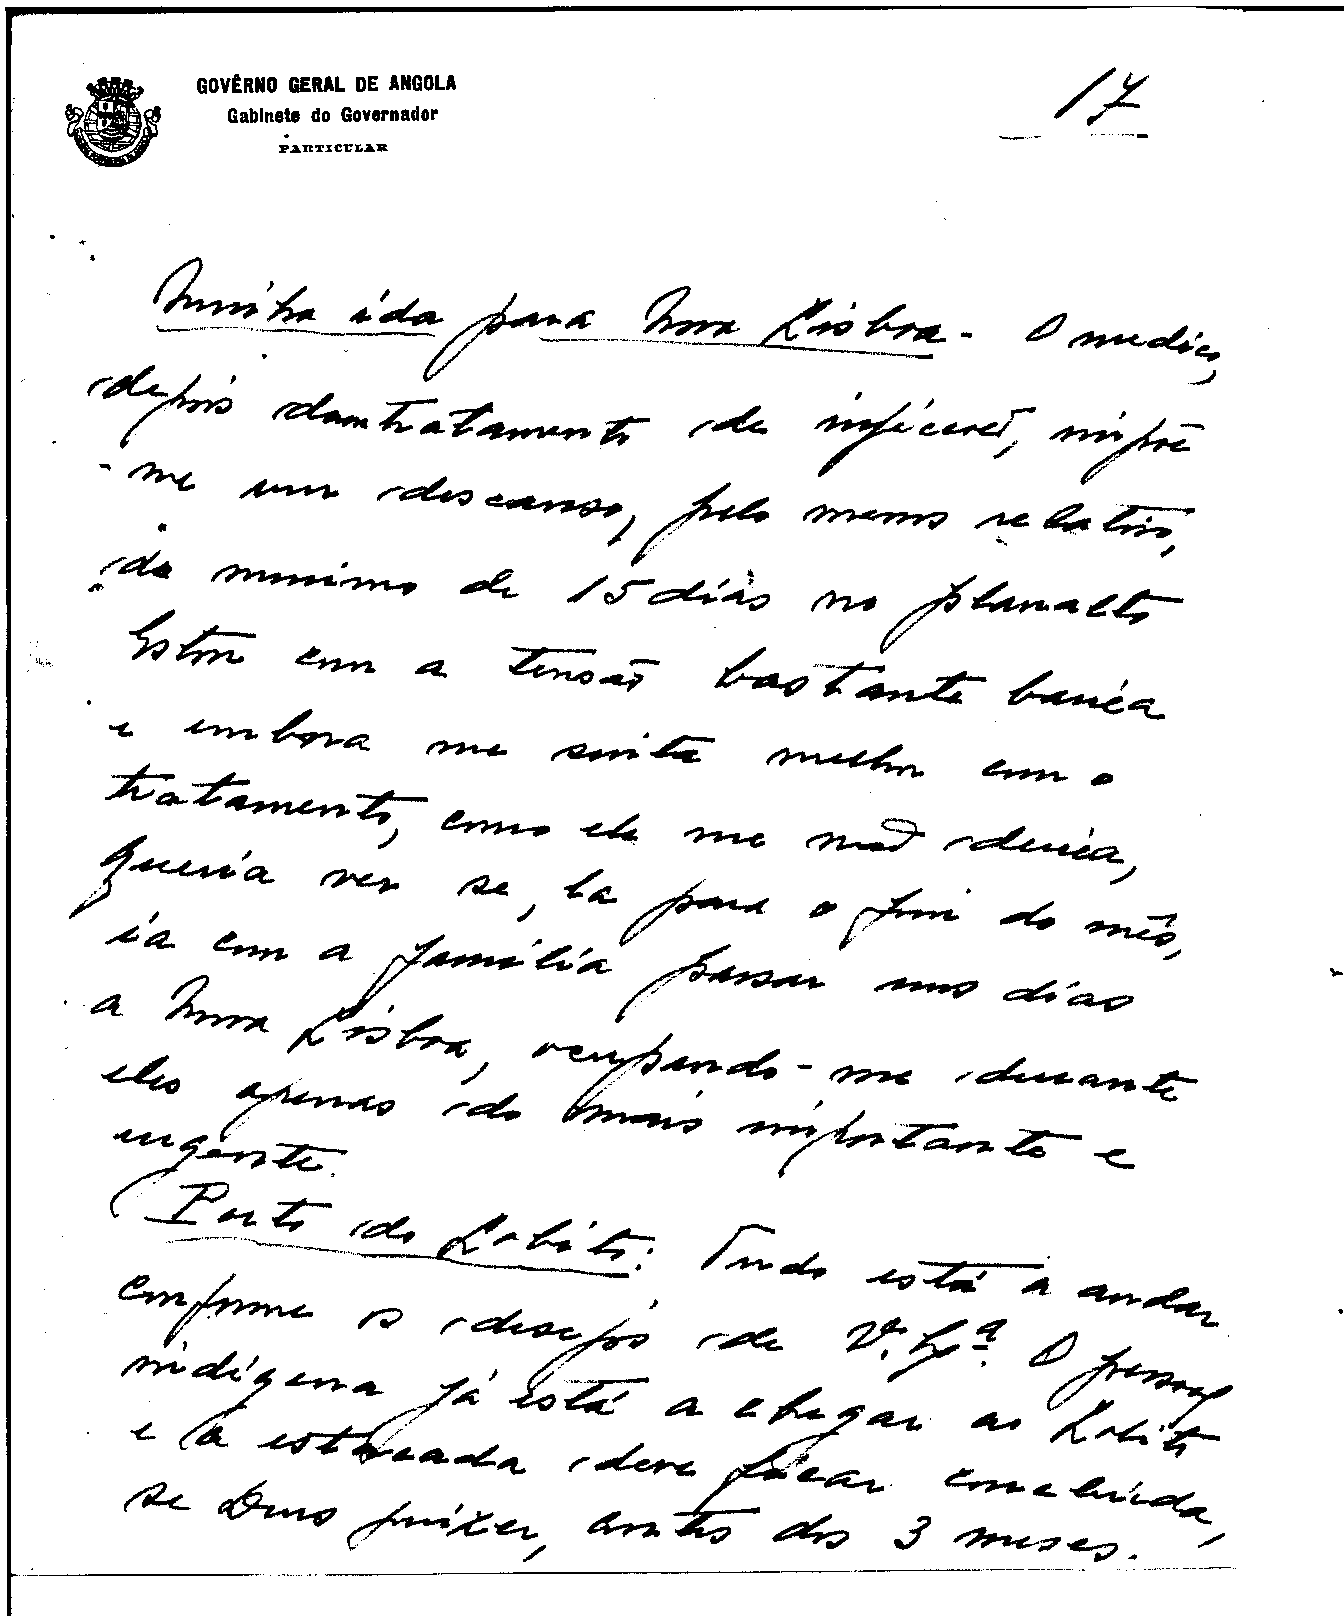 GOVÊRNO GERAL DE ANGOLA
Gabinete do Governador
PARTICULAR
17
Minha ida para Nova Lisboa - O medico,
depois dum tratamento de injécções, impõe
-me um descanso, pelo menos relativo,
do minimo de 15 dias no planalto
Estou com a tensão bastante baixa
e embora me sinta melhor com o
tratamento, como ele me não deixa,
queria ver se, la para o fim do mês,
ia com a família passar uns dias
a Nova Lisboa, ocupando-me durante
eles apenas do mais importante e
urgente.
Porto do Lobito: Tudo está a andar
conforme os desejos de V. Exª. O pessoal
indígena já está a chegar ao Lobito
e a estacada deve ficar concluida,
se Deus quizer, antes dos 3 meses.